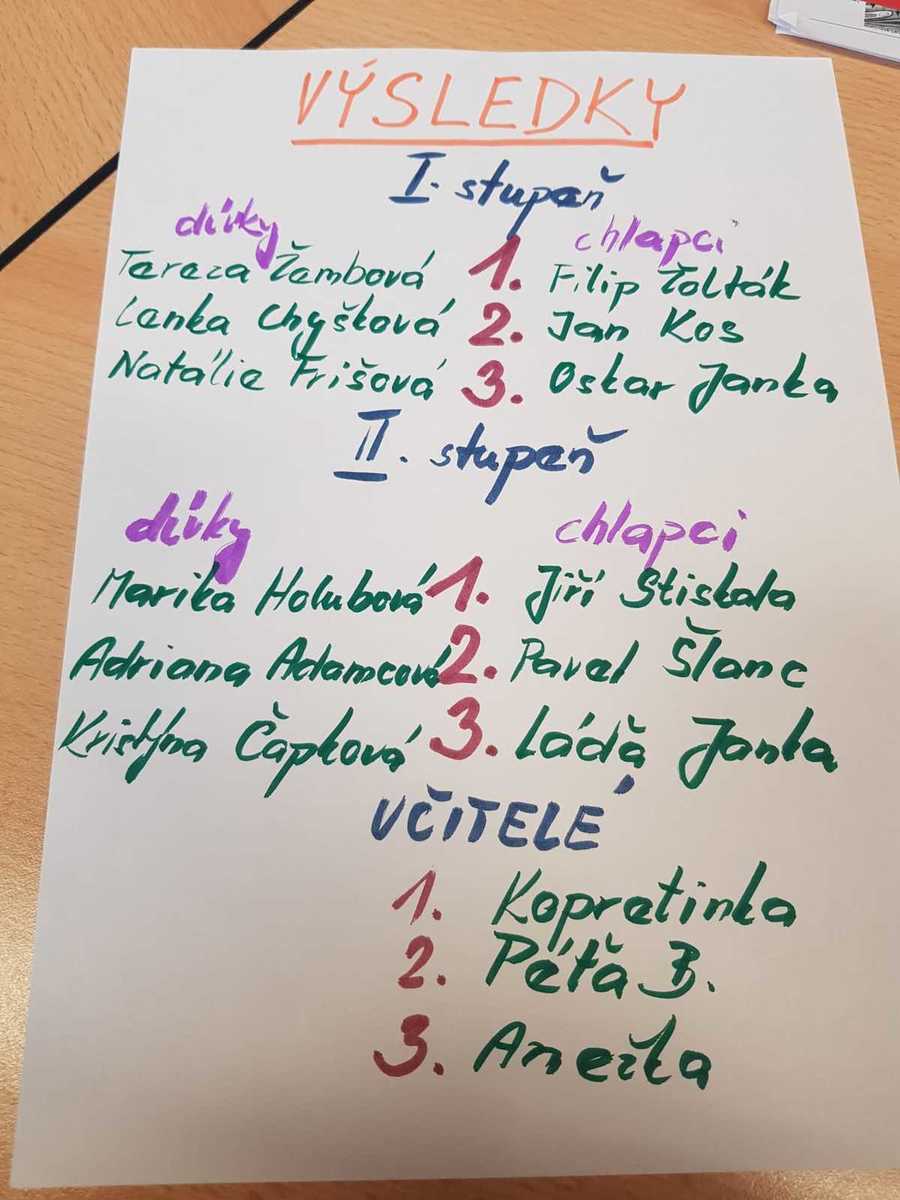 VÝSLEDKY
I. stupeň
dívky chlapci
Tereza Žembová 1. Filip Žolták
Lenka Chyšková 2. Jan Kos
Natálie Frišová 3. Oskar Janka
II. stupeň
dívky chlapci
Marika Holubová 1. Jiří Stiskala
Adriana Adamcová 2. Pavel Šlanc
Kristýna Čapková 3. Láďa Janka
UČITELÉ
1. Kopretinka
2. Péťa B.
3. Anežka